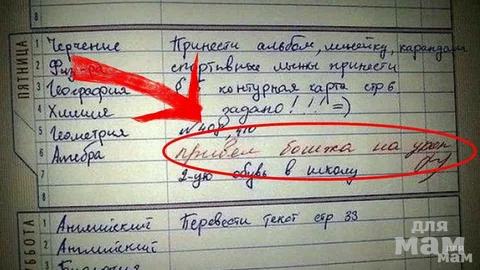 ПЯТНИЦА
1 Черчение Принести альбом, линейку, карандаш
2 спортивные лыжи принести
3 География контурная карта стр 6
4 Химия задано!!! =)
5 Геометрия № 408, 410
6 Алгебра привел бошка на урок
7 2-ую обувь в школу
8
СУББОТА
1 Английский Перевести текст стр 33
2 Английский
3 Биология
для мам
для мам